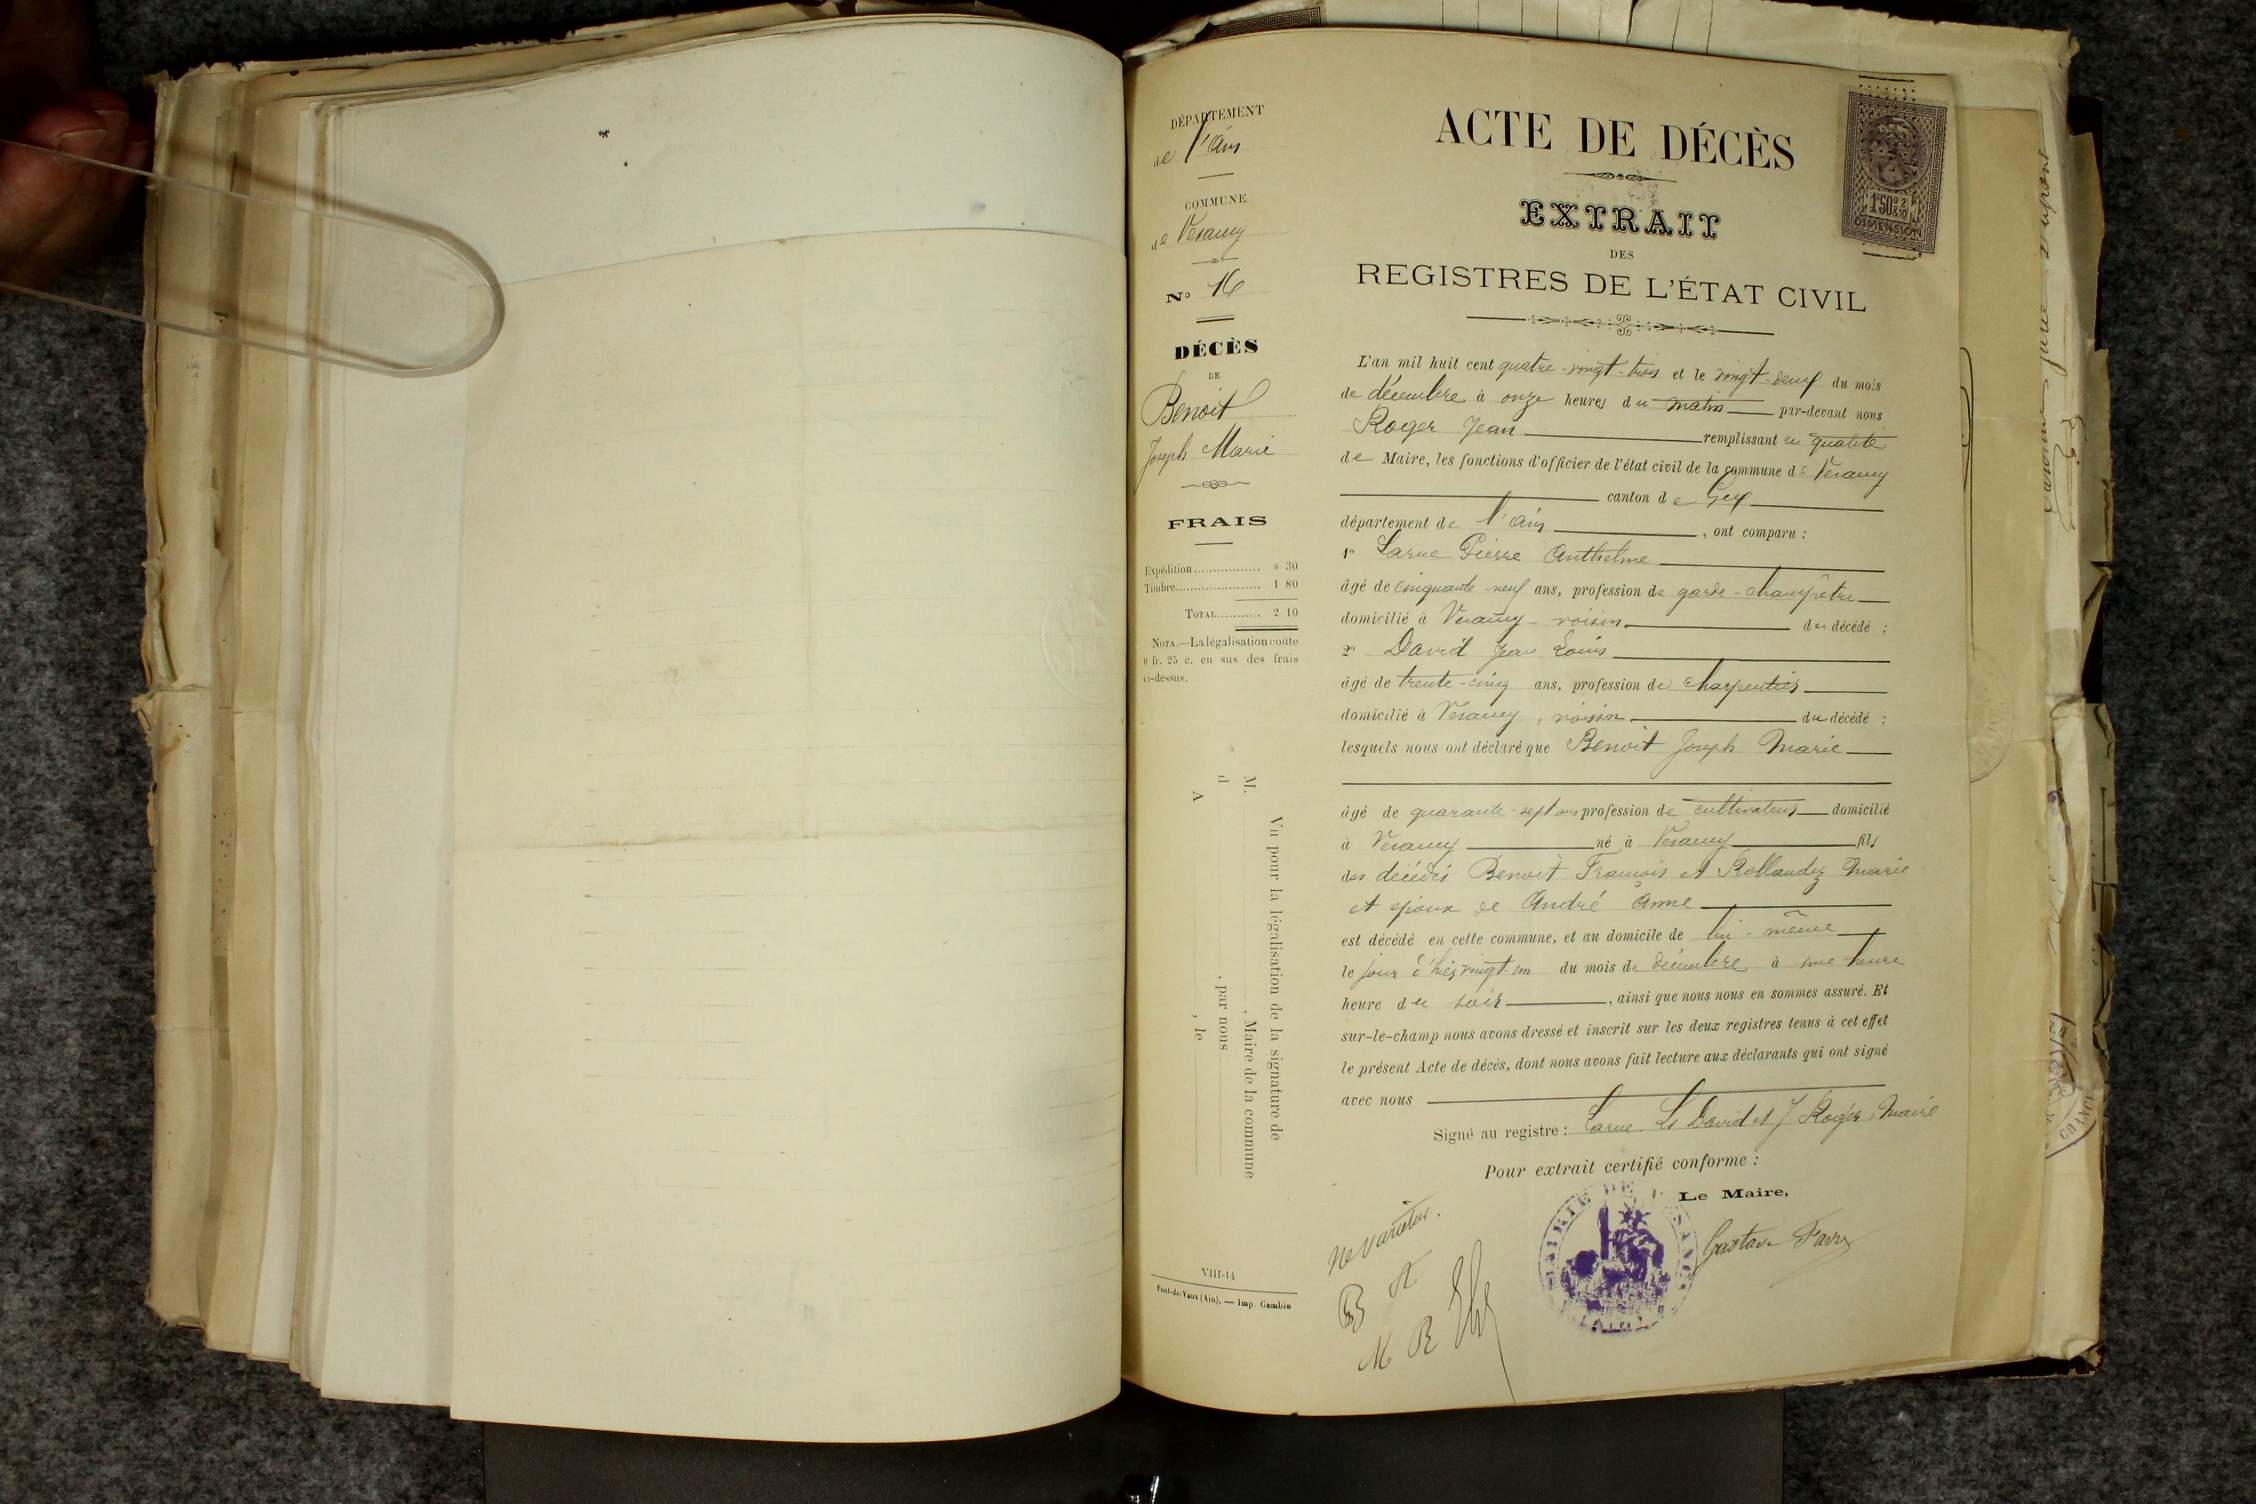 DÉPARTEMENT
de l'Ain
COMMUNE
de Vesancy
No 16
DÉCÈS
DE
Benoit
Joseph Marie
FRAIS
Expédition................. » 30
Timbre....................... 1 80
TOTAL........... 2 10
NOTA.—La légalisation coûte
0 fr. 25 c. en sus des frais
ci-dessus.
Vu pour la légalisation de la signature de
M. , Maire de la commune
d , par nous
A , le
VIII-14
Pont-de-Vaux (Ain), — Imp. Gambin
ACTE DE DÉCÈS
EXTRAIT
DES
REGISTRES DE L'ÉTAT CIVIL
1f50c 2
&10
DIMENSION
L'an mil huit cent quatre-vingt-trois et le vingt-deux du mois
de décembre à onze heures du matin par-devant nous
Roger Jean remplissant en qualité
de Maire, les fonctions d'officier de l'état civil de la commune de Vesancy
canton de Gex
département de l'Ain , ont comparu :
1° Larue Pierre Anthelme
âgé de cinquante-neuf ans, profession de garde-champêtre
domicilié à Vesancy voisin du décédé ;
2° David Jean Louis
âgé de trente-cinq ans, profession de charpentier
domicilié à Vesancy, voisin du décédé ;
lesquels nous ont déclaré que Benoit Joseph Marie
âgé de quarante-sept ans profession de cultivateur domicilié
à Vesancy né à Vesancy fils
des décédés Benoit François et Rollandez Marie
et époux de André Anne
est décédé en cette commune, et au domicile de lui-même
le jour d'hier vingt-un du mois de décembre à une heure
heure du soir , ainsi que nous nous en sommes assuré. Et
sur-le-champ nous avons dressé et inscrit sur les deux registres tenus à cet effet
le présent Acte de décès, dont nous avons fait lecture aux déclarants qui ont signé
avec nous
Signé au registre : Larue. Ls David et J Roger, Maire
Pour extrait certifié conforme :
Le Maire,
Gustave Favre
MAIRIE DE
Ne varietur.